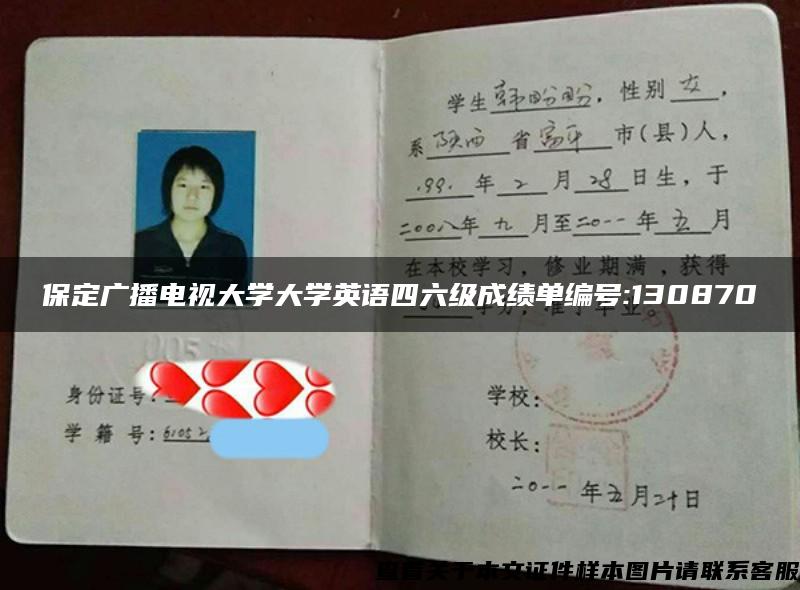 学生韩盼盼，性别女，
系陕西省富平市(县)人，
1991年2月28日生，于
二00八年九月至二0一一年五月
在本校学习，修业期满，获得
学分，准予毕业。
保定广播电视大学大学英语四六级成绩单编号:130870
005
身份证号:
学籍号:61052
学校:
校长:
二0一一年五月二十日
查看关于本文证件样本图片请联系客服